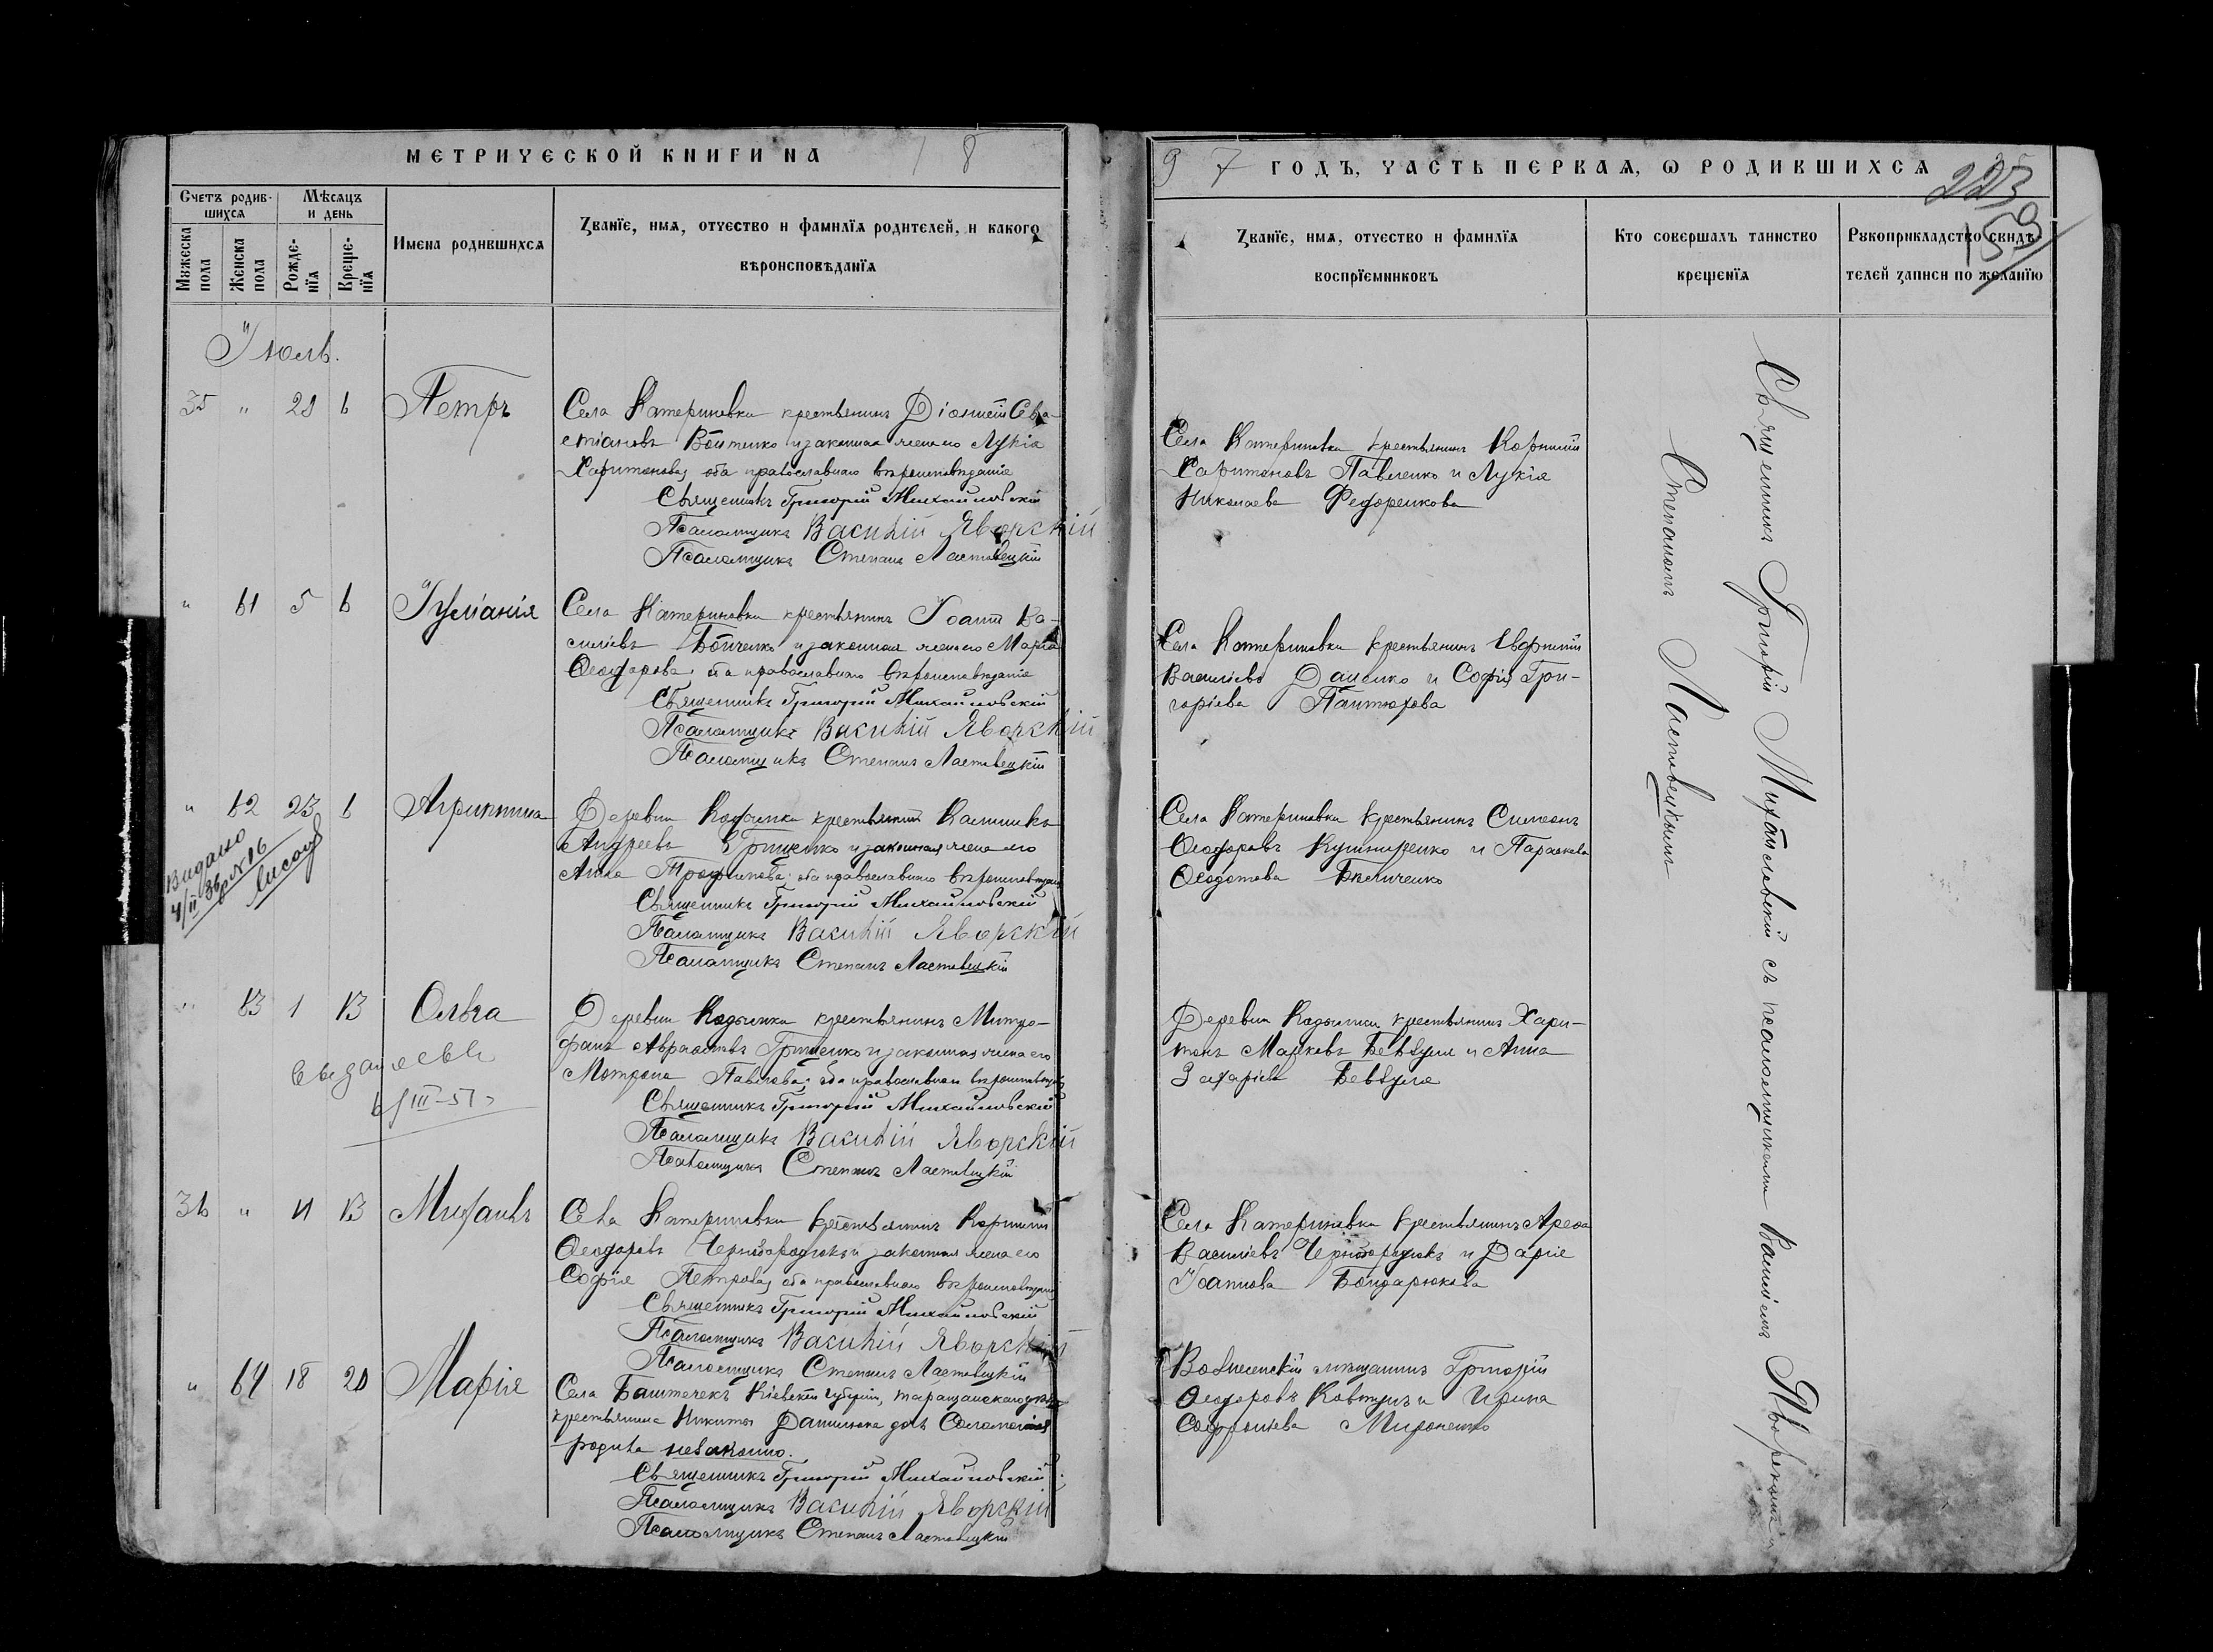 МЕТРИЧЕСКОЙ КНИГИ НА 18
97 ГОДЪ, ЧАСТЬ ПЕРВАЯ, Ѡ РОДИВШИХСЯ
223
159
Счетъ родив-
шихся
Мѣсяцъ
и день
Мужеска
пола
Женска
пола
Рожде-
нїя
Креще-
нїя
Имена родившихся
Званїе, имя, отчество и фамилїя родителей, и какого
вѣроисповѣданїя
Званїе, имя, отчество и фамилїя
воспрїемниковъ
Кто совершалъ таинство
крещенїя
Рукоприкладство свидѣ-
телей записи по желанїю
Іюль.
35 " 6 Петръ
Села Катериновки крестьянинъ
Войтенко и законная жена его Лукія
Харитонова, оба православнаго вѣроисповѣданія
Священникъ Григорій Михайловскій
Псаломщикъ Василій Яворскій
Псаломщикъ Степанъ Ластовецкій
Села Катериновки крестьянинъ Корнилій
Харитоновъ Павленко и Лукія
Николаева Федоренкова
" 61 5 6 Іуліанія
Села Катериновки крестьянинъ Іоаннъ Ва-
силіевъ Бойченко и законная жена его Марія
Ѳеодорова, оба православнаго вѣроисповѣданія
Священникъ Григорій Михайловскій
Псаломщикъ Василій Яворскій
Псаломщикъ Степанъ Ластовецкій
Села Катериновки крестьянинъ Евфимій
Василіевъ Даценко и Софія Гри-
горіева Пантюхова
" 62 23 6 Агриппина
Видано
Деревни крестьянинъ Каллиникъ
Андреевъ Грищенко и законная жена его
Анна Трофимова, оба православнаго вѣроисповѣданія
Священникъ Григорій Михайловскій
Псаломщикъ Василій Яворскій
Псаломщикъ Степанъ Ластовецкій
Села Катериновки крестьянинъ Симеонъ
Ѳеодоровъ Кушниренко и Параскева
Ѳеодотова Бѣличенко
" 63 1 13 Ольга
6/III-51
Деревни крестьянинъ Митро-
фанъ Авраамовъ Грищенко и законная жена его
Матрона Павлова, оба православнаго вѣроисповѣданія
Священникъ Григорій Михайловскій
Псаломщикъ Василій Яворскій
Псаломщикъ Степанъ Ластовецкій
Деревни крестьянинъ Хари-
тонъ Марковъ Бевзуля и Анна
Захаріева Бевзуля
36 " 11 13 Михаилъ
Села Катериновки крестьянинъ Корнилій
Ѳеодоровъ и законная жена его
Софія Петрова, оба православнаго вѣроисповѣданія
Священникъ Григорій Михайловскій
Псаломщикъ Василій Яворскій
Псаломщикъ Степанъ Ластовецкій
Села Катериновки крестьянинъ
Василіевъ и Дарія
Іоаннова Бондарюкова
" 64 18 20 Марія
Села Баштечекъ Кіевской губерніи, таращанскаго уѣзда
крестьянина Никиты дочь Соломонія
родила незаконно.
Священникъ Григорій Михайловскій
Псаломщикъ Василій Яворскій
Псаломщикъ Степанъ Ластовецкій
Вознесенскій мѣщанинъ Григорій
Ѳеодоровъ Ковтунъ и Ирина
Софроніева Мироненко
Священникъ Григорій Михайловскій съ псаломщиками Василіемъ Яворскимъ и
Степаномъ Ластовецкимъ